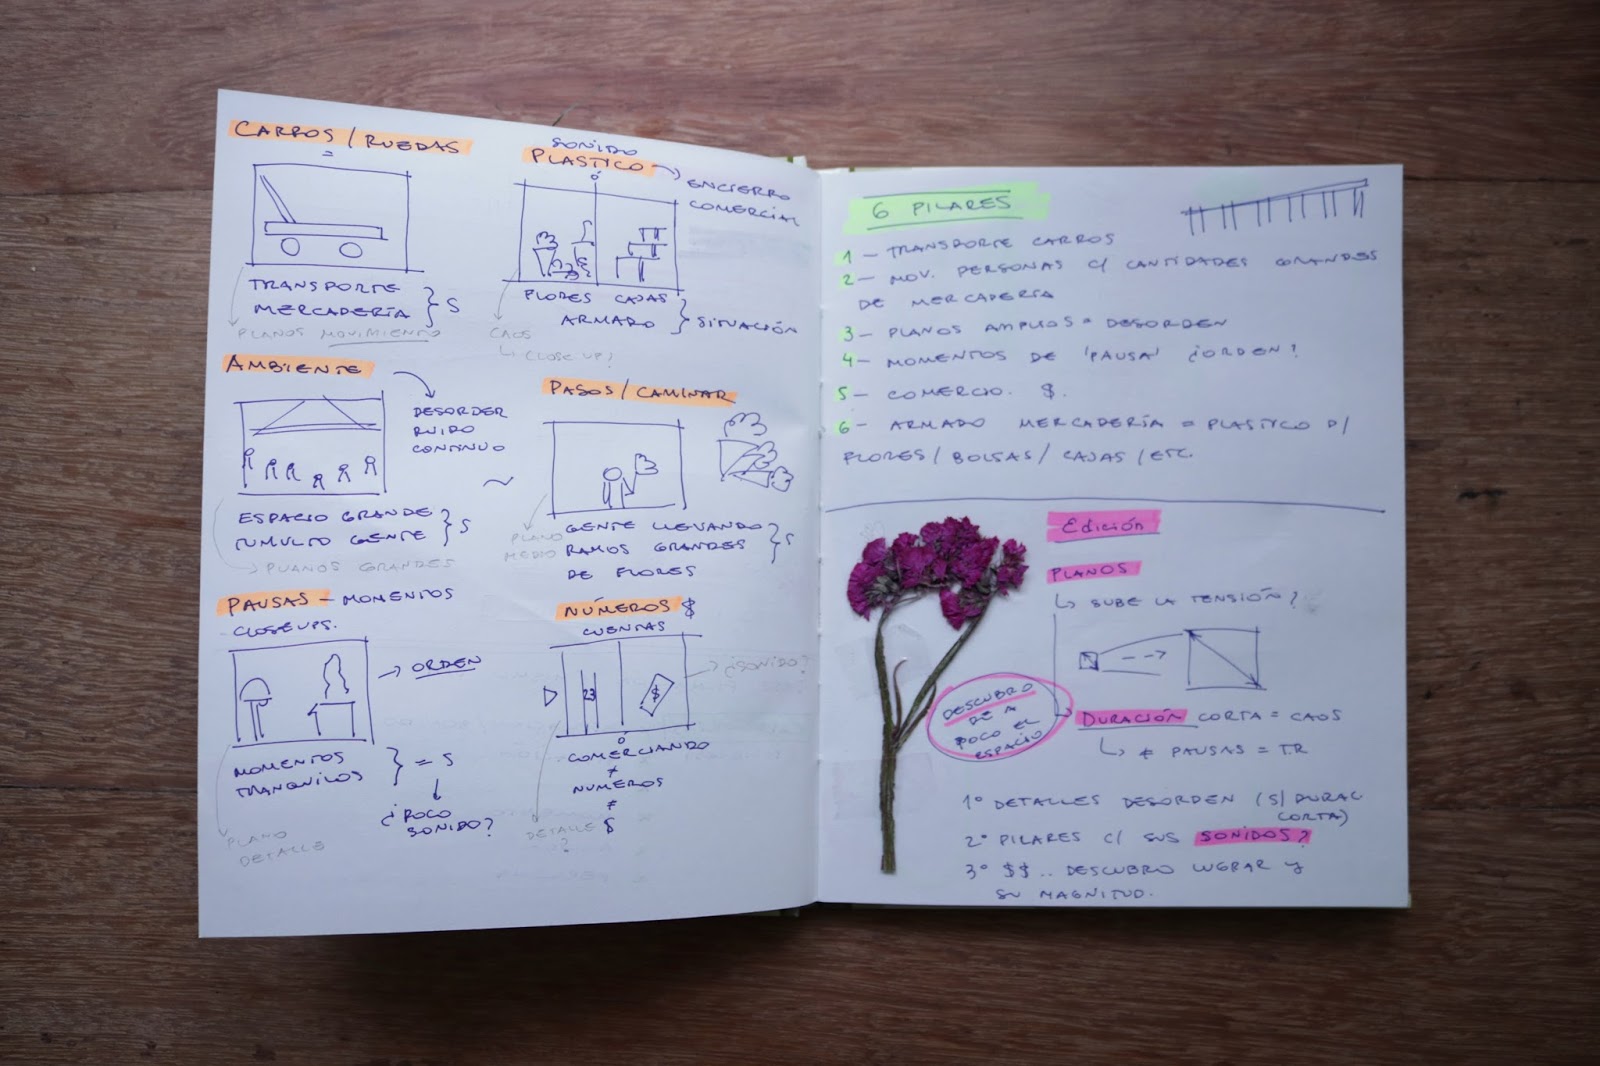 CARROS / RUEDAS
=
TRANSPORTE
MERCADERÍA } S
PLANOS MOVIMIENTO
SONIDO
PLASTYCO → ENCIERRO
COMERCIAL
Ó
FLORES CAJAS
ARMADO } SITUACIÓN
CAOS
↳ CLOSE UP?
AMBIENTE
DESORDEN
RUIDO
CONTINUO
ESPACIO GRANDE
TUMULTO GENTE } S
↳ PLANOS GRANDES
PASOS / CAMINAR
~
GENTE LLEVANDO
RAMOS GRANDES
DE FLORES } S
PLANO
MEDIO
PAUSAS - MOMENTOS
CLOSE UPS.
→ ORDEN
MOMENTOS
TRANQUILOS } = S
¿POCO
SONIDO?
PLANO
DETALLE
NÚMEROS $
CUENTAS
23
$
¿SONIDO?
Ó
COMERCIANDO
+
NUMEROS
≠
$
DETALLE
?
6 PILARES
1 - TRANSPORTE CARROS
2 - MOV. PERSONAS C/ CANTIDADES GRANDES
DE MERCADERÍA
3 - PLANOS AMPLIOS = DESORDEN
4 - MOMENTOS DE 'PAUSA' ¿ORDEN?
5 - COMERCIO. $.
6 - ARMADO MERCADERÍA = PLASTYCO P/
FLORES / BOLSAS / CAJAS / ETC.
Edición
PLANOS
↳ SUBE LA TENSIÓN?
DESCUBRO
DE A
POCO EL
ESPACIO
DURACIÓN CORTA = CAOS
↳ ≠ PAUSAS = T.R
1° DETALLES DESORDEN (S/ DURAC
CORTA)
2° PILARES C/ SUS SONIDOS?
3° $$.. DESCUBRO LUGRAR Y
SU MAGNITUD.